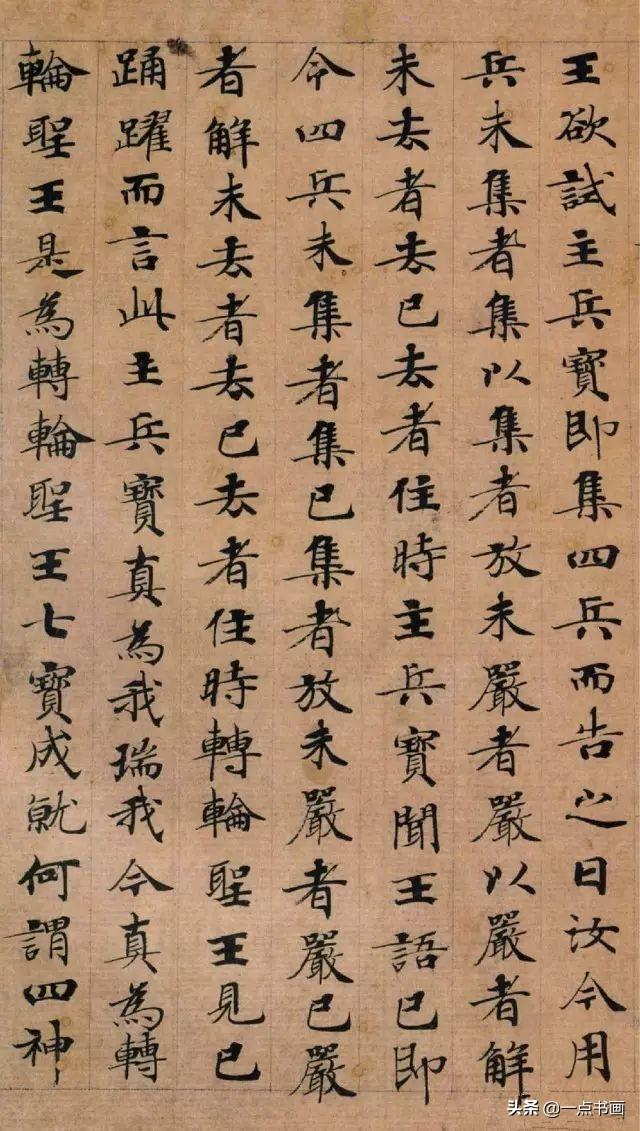 王欲試主兵寶即集四兵而告之曰汝今用
兵未集者集以集者放未嚴者嚴以嚴者解
未去者去已去者住時主兵寶聞王語已即
令四兵未集者集已集者放未嚴者嚴已嚴
者解未去者去已去者住時轉輪聖王見已
踊躍而言此主兵寶真為我瑞我今真為轉
輪聖王是為轉輪聖王七寶成就何謂四神
头条 @一点书画